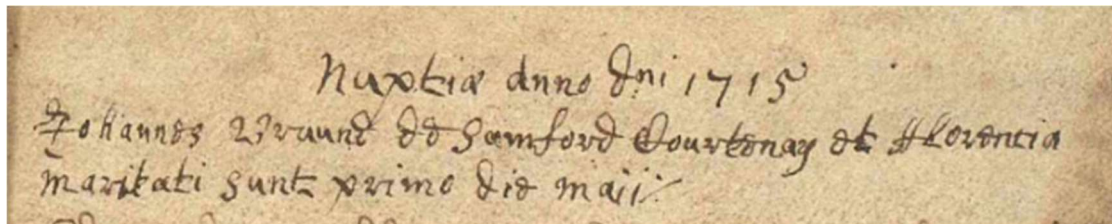 Nuptiæ anno dni 1715
Johannes Vraunc de Samford Courtenay et Florencia
maritati sunt primo die maij